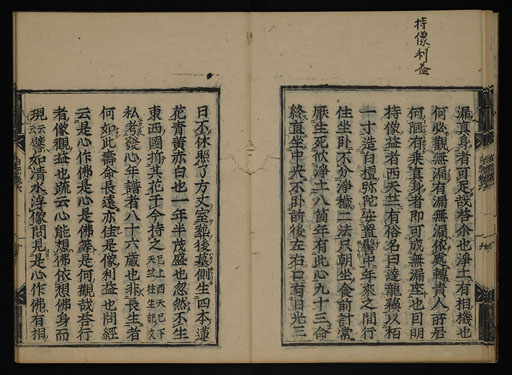 持像利益
漏真身者可足說答余也淨土有相機也
何必觀無漏有漏無漏依異轉責人所居
何 有乗真身者即可成無漏座也曰明
持像益者西天竺有俗名曰達 以栢
一寸造白檀弥陀安置 中年來之間行
住坐卧不分淨穢二法只朝坐食前計常
厭生死欣淨土八箇年有此心九十三命
終直坐中央不卧前後左右口有旧光三
日不休 了方丈室 後墓側生四本蓮
花青黄赤白也一年半茂盛也忽然不生
東西國摘其花于今持之 已上西天 下 天竺往生記文
私考發心年譜者八十六歲也非長生者
何如此壽命長遠亦住是像利益也問經
云是心作佛是心是佛等是何觀哉答行
者像觀益也疏云心能想佛依想佛身而
現云云譬如清水浮像問見是心作佛有相